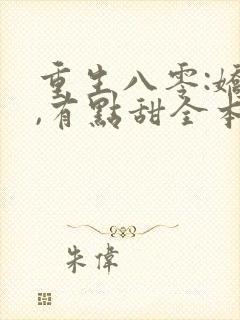 重生八零:嬌
,有點甜全本
朱偉